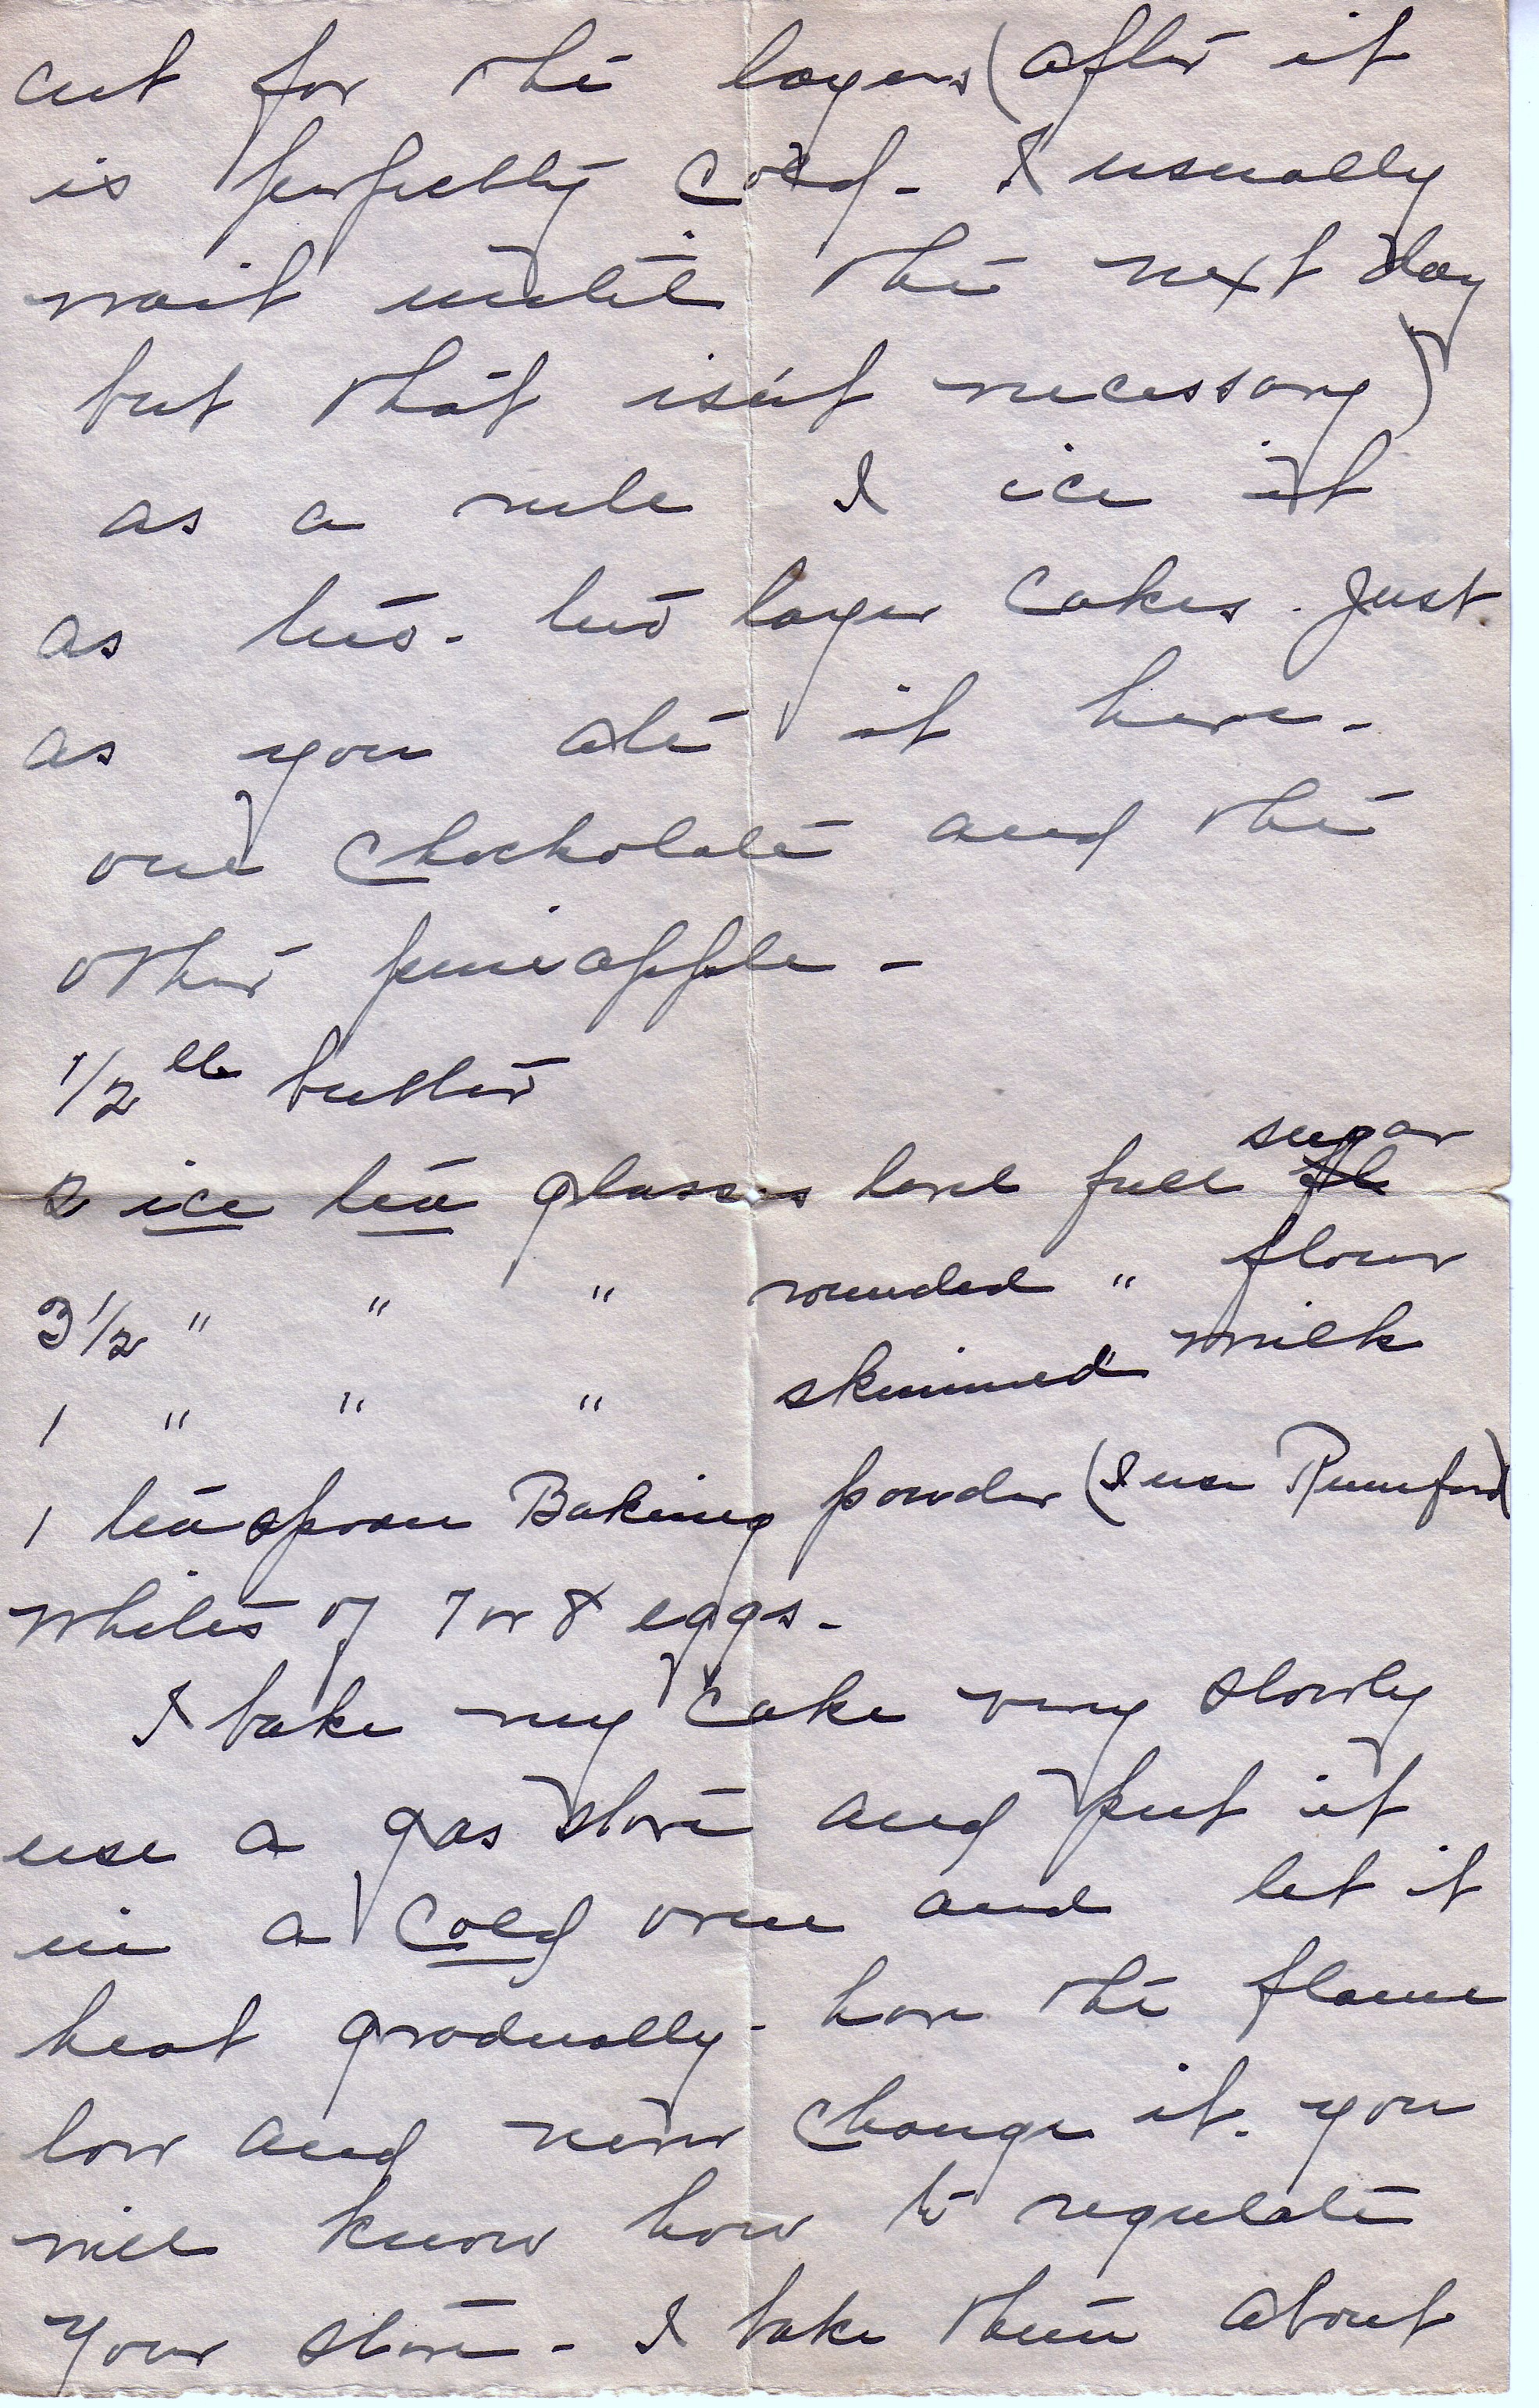 cut for the layers (after it
is perfectly cold - I usually
wait until the next day
but that isn't necessary)
as a rule I ice it
as two - two layer cakes. Just
as you ate it here -
one chockolate and the
other pineapple -
1/2 lb butter
2 ice tea glasses level full fl sugar
3 1/2 " " " rounded " flour
1 " " " skimmed milk
1 teaspoon Baking powder (I use Rumford)
Whites of 7 or 8 eggs -
I bake my cake very slowly
use a gas stove and put it
in a cold oven and let it
heat gradually - have the flame
low and never change it. you
will know how to regulate
your stove - I bake them about